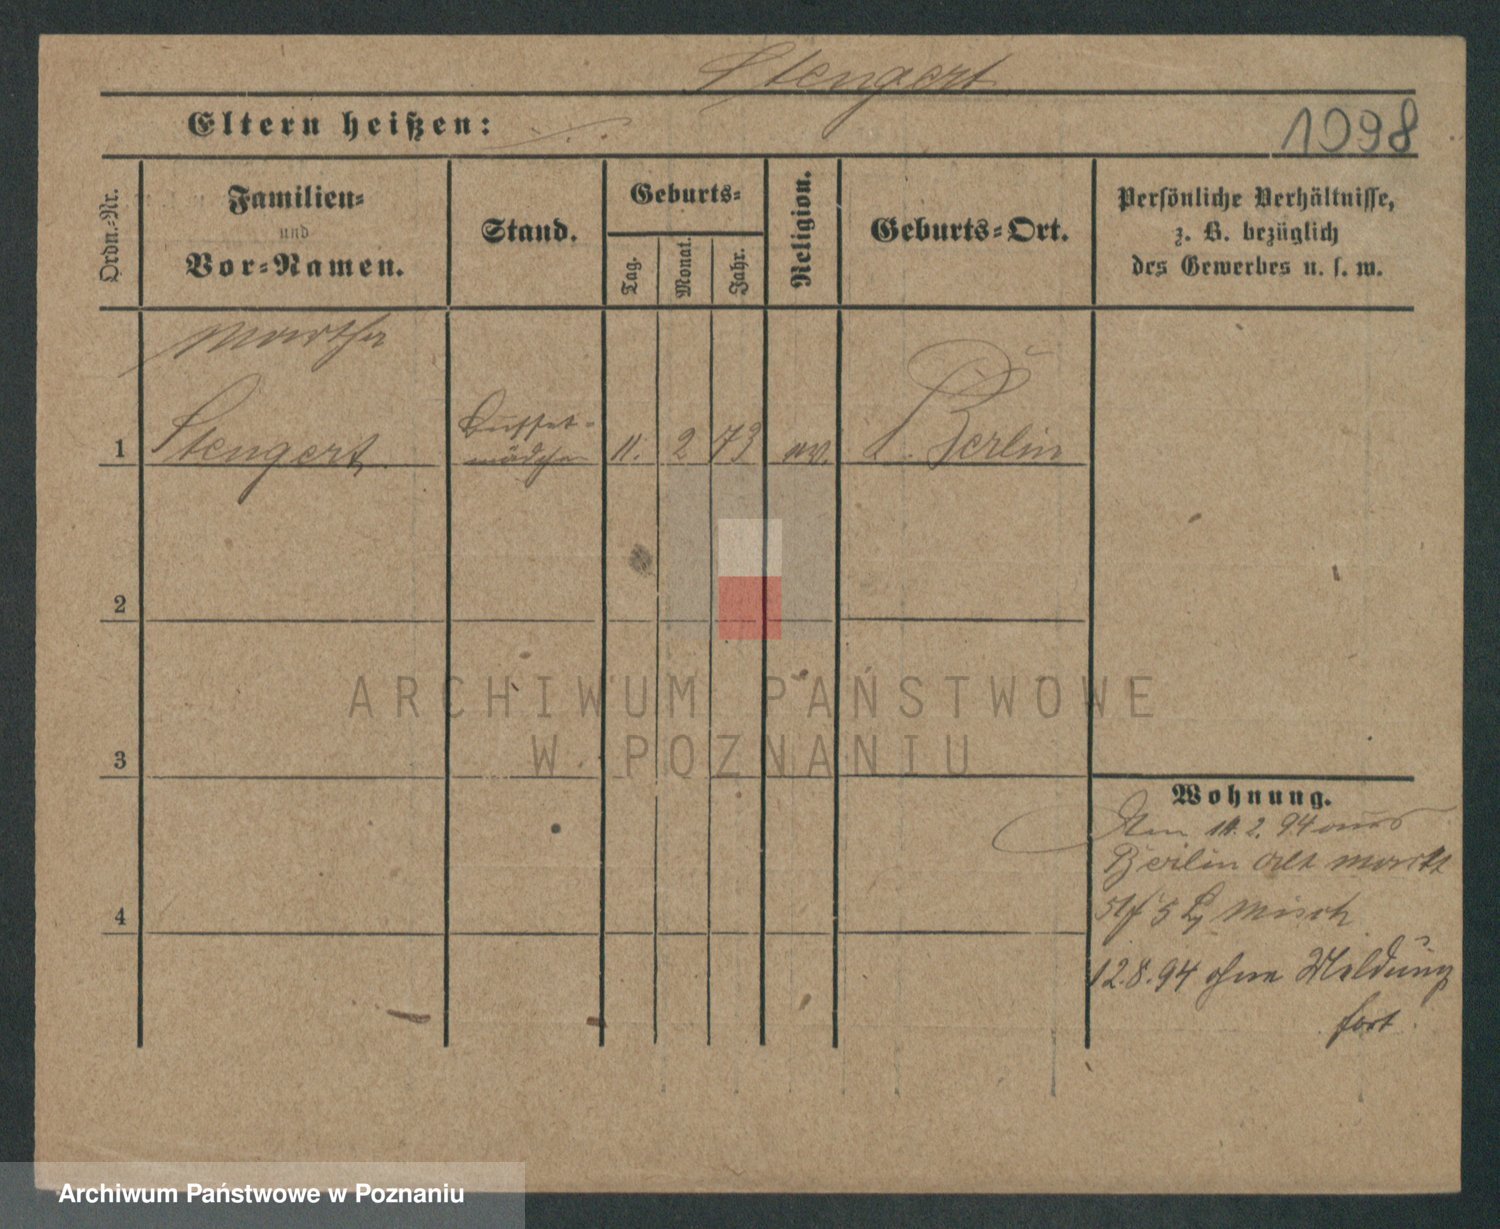 Stengert
Eltern heißen:
1098
Ordn.-Nr.
Familien-
und
Vor-Namen.
Stand.
Geburts-
Tag.
Monat.
Jahr.
Religion.
Geburts-Ort.
Persönliche Verhältnisse,
z. B. bezüglich
des Gewerbes u. s. w.
Martha
1 Stengert Buffet-
mädchen 11. 2 73 ev. Berlin
2
3
4
Wohnung.
94 aus
Berlin Alt Markt
5 Misch
12.8.94 ohne Meldung
fort.
ARCHIWUM PAŃSTWOWE
W POZNANIU
Archiwum Państwowe w Poznaniu